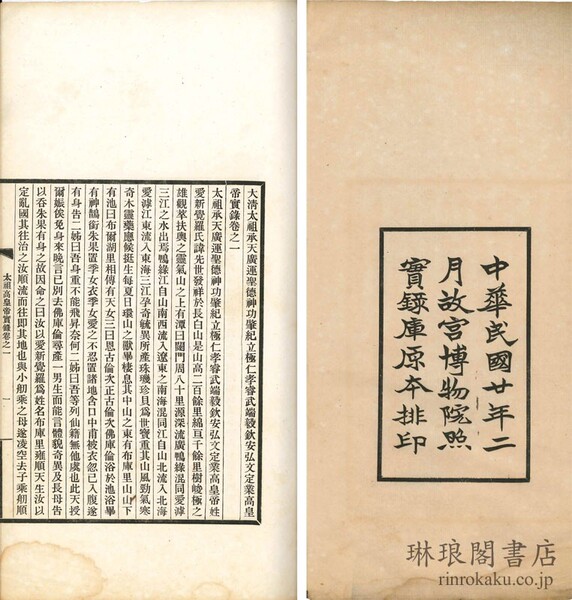 中華民國廿年二
月故宮博物院照
實錄庫原本排印
大清太祖承天廣運聖德神功肇紀立極仁孝睿武端毅欽安弘文定業高皇
帝實錄卷之一
太祖承天廣運聖德神功肇紀立極仁孝睿武端毅欽安弘文定業高皇帝姓
愛新覺羅氏諱先世發祥於長白山是山高二百餘里綿亙千餘里樹峻極之
雄觀萃扶輿之靈氣山之上有潭曰闥門周八十里源深流廣鴨綠混同愛滹
三江之水出焉鴨綠江自山南西流入遼東之南海混同江自山北流入北海
愛滹江東流入東海三江孕奇毓異所產珠璣珍貝為世寶重其山風勁氣寒
奇木靈藥應候挺生每夏日環山之獸畢棲息其中山之東有布庫里山山下
有池曰布爾湖里相傳有天女三曰恩古倫次正古倫次佛庫倫浴於池浴畢
有神鵲銜朱果置季女衣季女愛之不忍置諸地含口中甫被衣忽已入腹遂
有身告二姊曰吾身重不能飛昇奈何二姊曰吾等列仙籍無他虞也此天授
爾娠俟免身來晚言已別去佛庫倫尋產一男生而能言體貌奇異及長母告
以吞朱果有身之故因命之曰汝以愛新覺羅為姓名布庫里雍順天生汝以
定亂國其往治之汝順流而往即其地也與小舠乘之母遂凌空去子乘舠順
太祖高皇帝實錄卷之一
一
琳琅閣書店
rinrokaku.co.jp